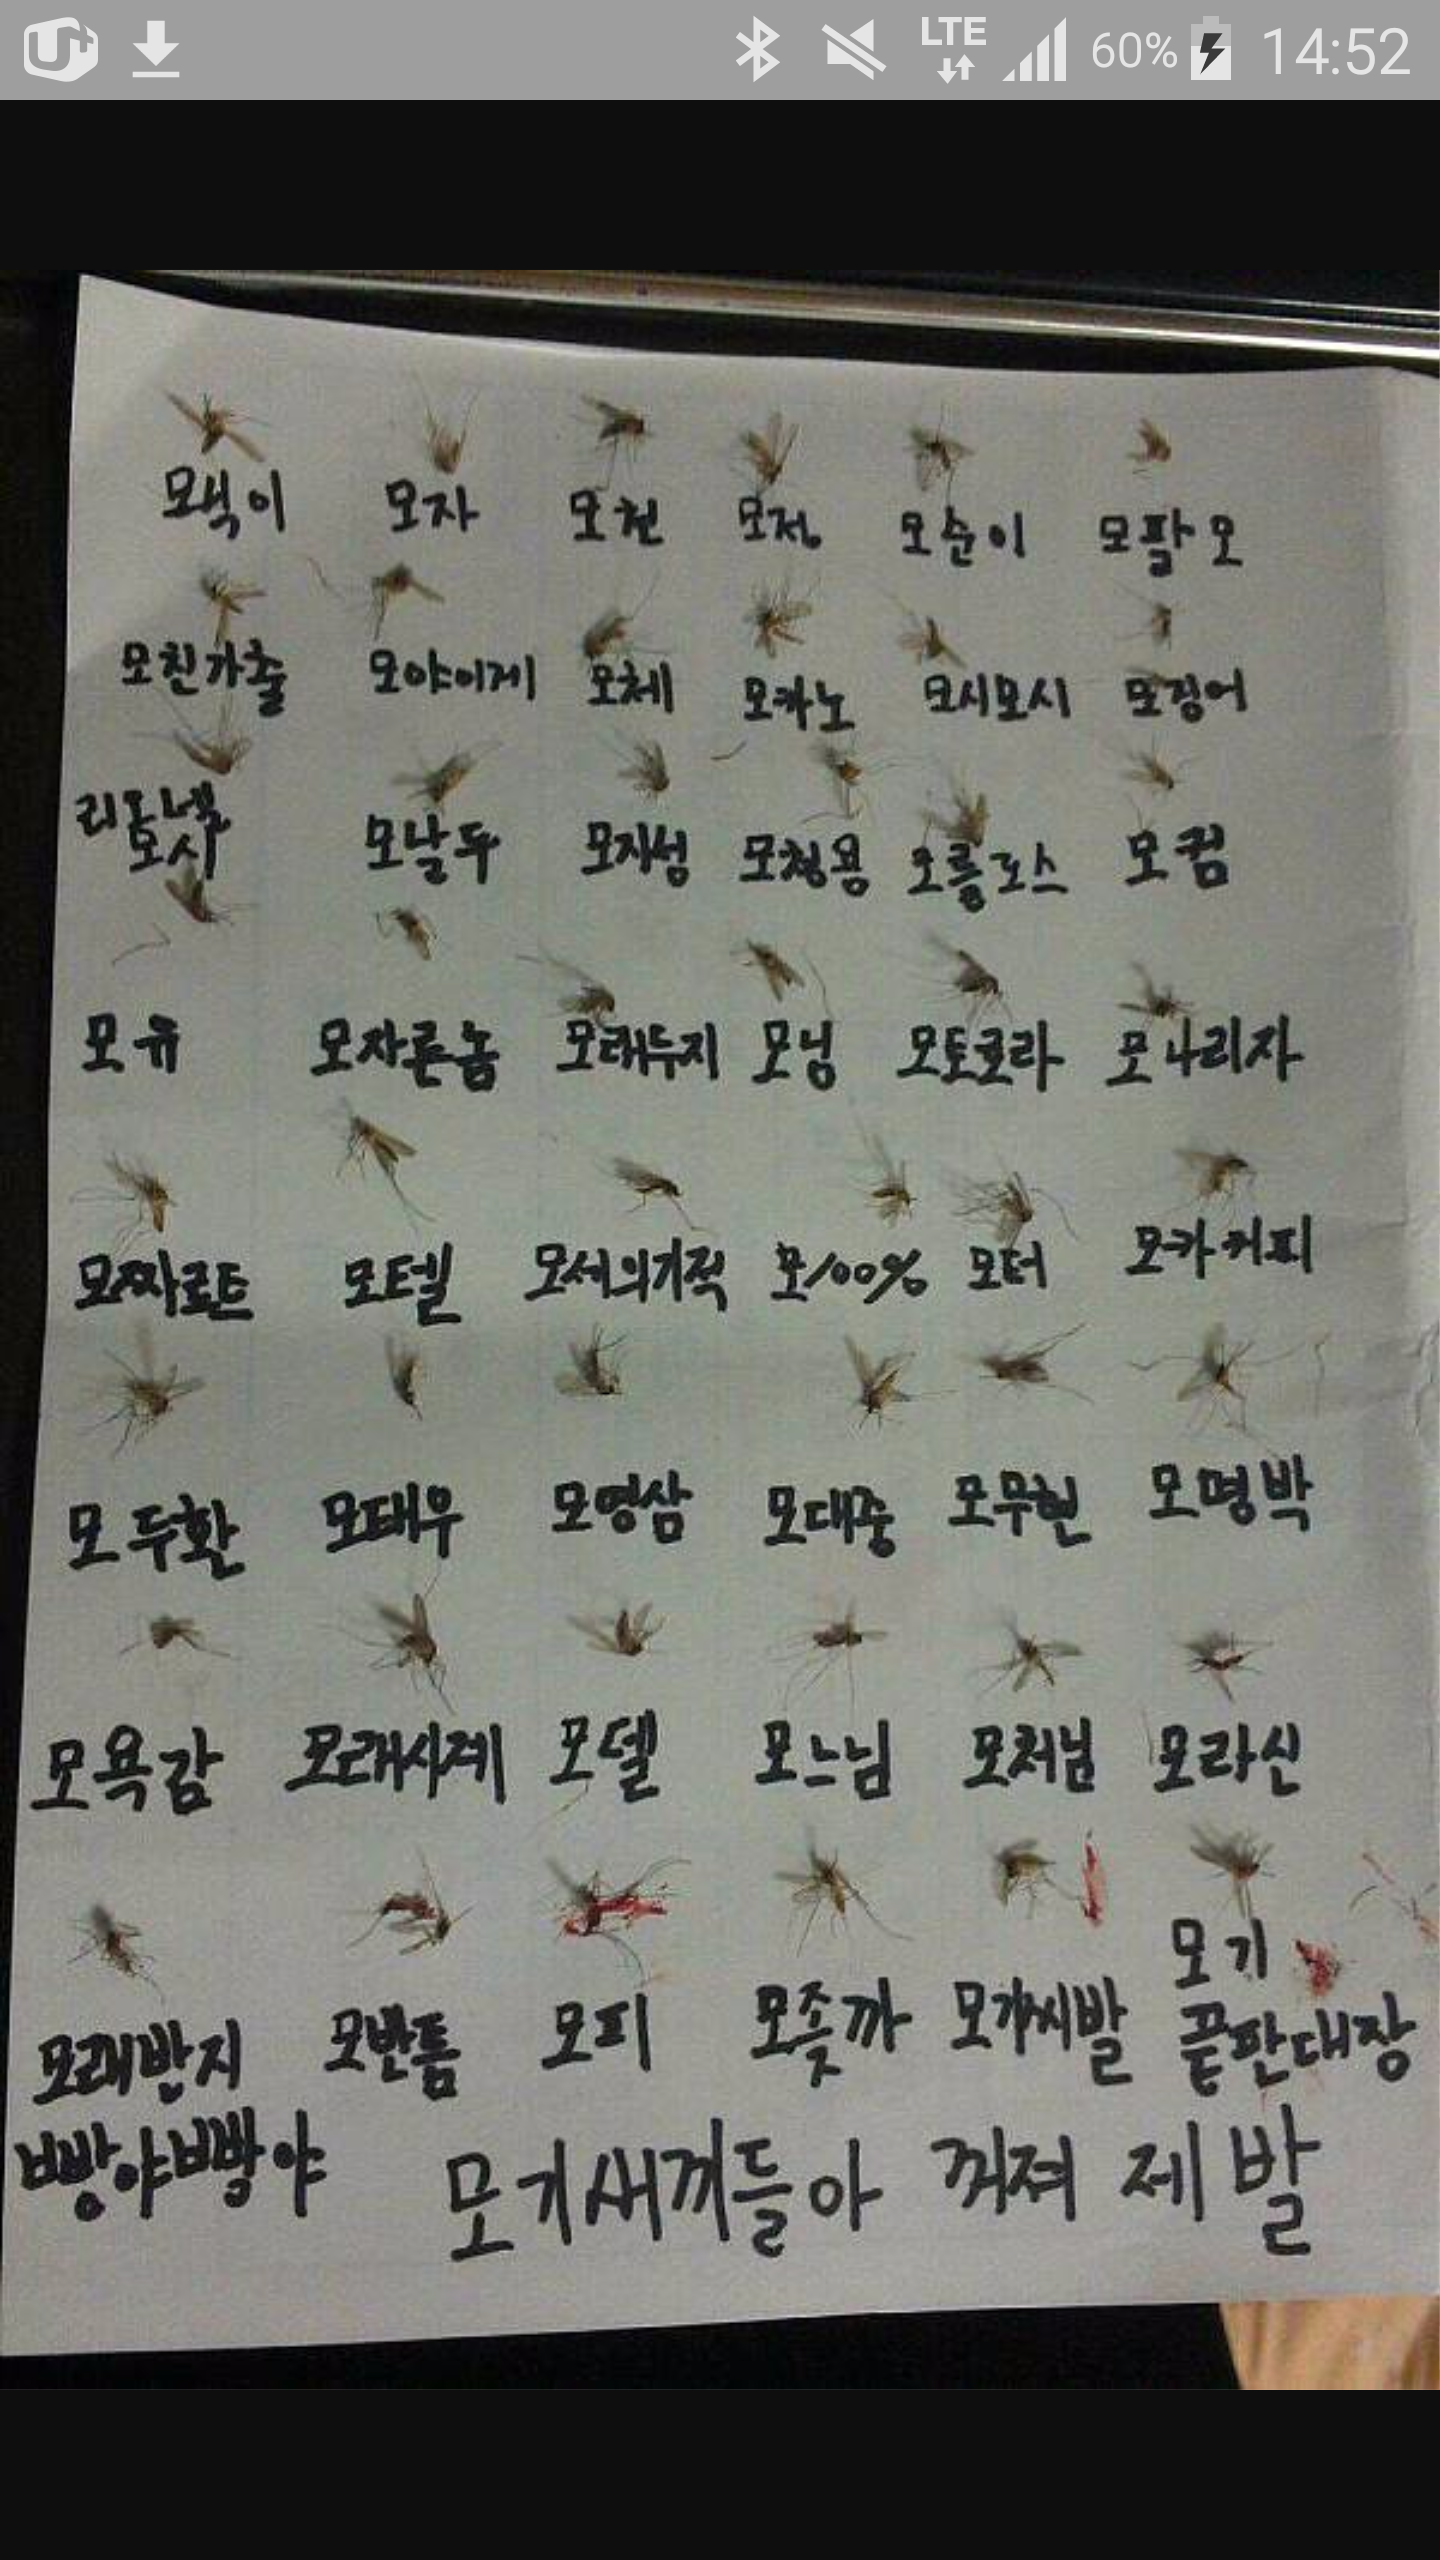 U+ LTE 60% 14:52
모빅이 모자 모천 모정 모순이 모팔모
모친가출 모야이게 모체 모카노 모시모시 모징어
리오넬 모날두 모지성 모청용 오를로스 모컴
모시
모유 모자른놈 모래두지 모님 모토로라 모나리자
모짜르트 모텔 모세의기적 모100% 모터 모카커피
모두환 모태우 모영삼 모대중 모무현 모명박
모욕감 모래시계 모델 모느님 모처님 모라신
모기
모래반지 모반틈 모피 모좆까 모기씨발 끝판대장
빵야빵야 모기새끼들아 꺼져 제발